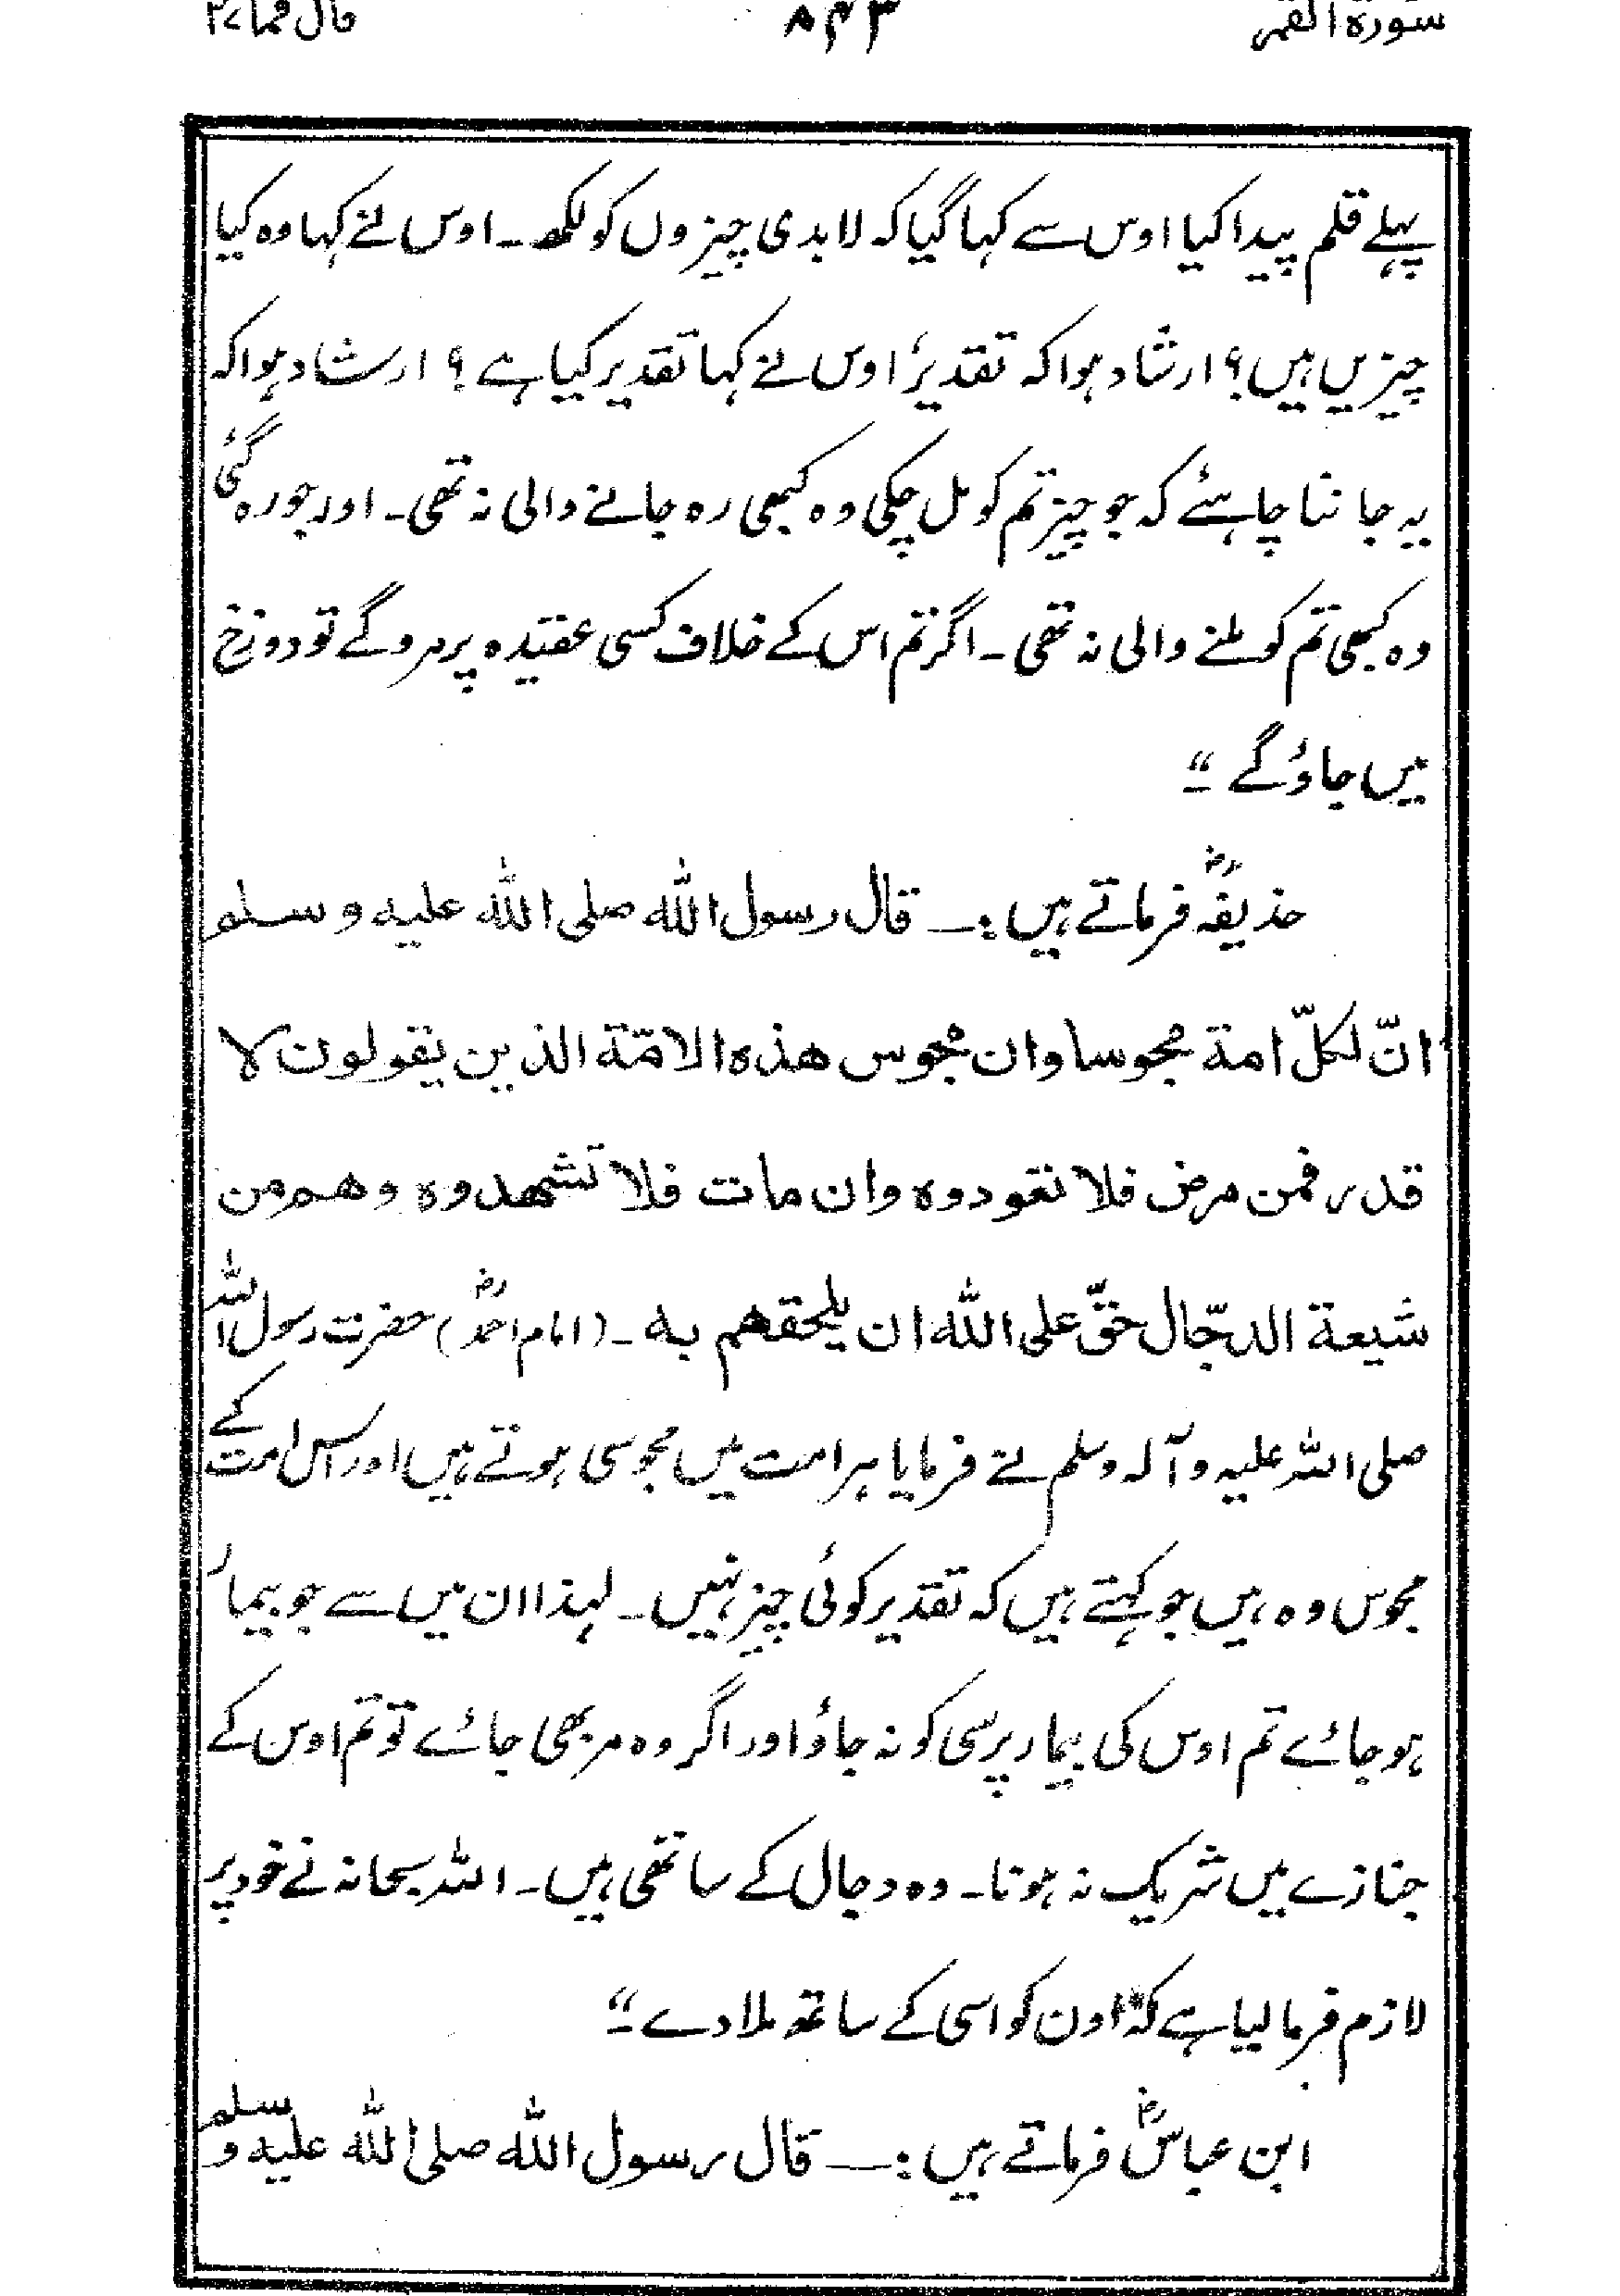 سورہ القمر ۸۴۳ قال فما ۲۷
پہلے قلم پیدا کیا اوس سے کہا گیا کہ لابدی چیزوں کو لکھ۔ اوس نے کہا وہ کیا
چیزیں ہیں؟ ارشاد ہوا کہ تقدیرُ اوس نے کہا تقدیر کیا ہے؟ ارشاد ہوا کہ
یہ جاننا چاہئے کہ جو چیز تم کو مل چکی وہ کبھی رہ جانے والی نہ تھی۔ اور جو رہ گئی
وہ کبھی تم کو ملنے والی نہ تھی۔ اگر تم اس کے خلاف کسی عقیدہ پر مروگے تو دوزخ
میں جاؤگے ۔“
حذیفہؓ فرماتے ہیں :۔ قال رسول اللہ صلی اللہ علیہ وسلم
انّ لکلّ امة مجوسا وان مجوس هذه الامّة الذین یقولون لا
قدر فمن مرض فلا تعودوه وان مات فلا تشهدوه وهم من
شیعة الدجّال حقّ علی الله ان یلحقهم به ۔ (امام احمدؓ) حضرت رسول اللہ
صلی اللہ علیہ وآلہ وسلم نے فرمایا ہر امت میں مجوسی ہوتے ہیں اور اس امت کے
مجوس وہ ہیں جو کہتے ہیں کہ تقدیر کوئی چیز نہیں۔ لہذا ان میں سے جو بیمار
ہوجائے تم اوس کی بیمار پرسی کو نہ جاؤ اور اگر وہ مر بھی جائے تو تم اوس کے
جنازے میں شریک نہ ہونا۔ وہ دجال کے ساتھی ہیں۔ اللہ سبحانہ نے خود پر
لازم فرمالیا ہے کہ اون کو اسی کے ساتھ ملادے ۔“
ابن عباسؓ فرماتے ہیں :۔ قال رسول اللہ صلی اللہ علیہ وسلم